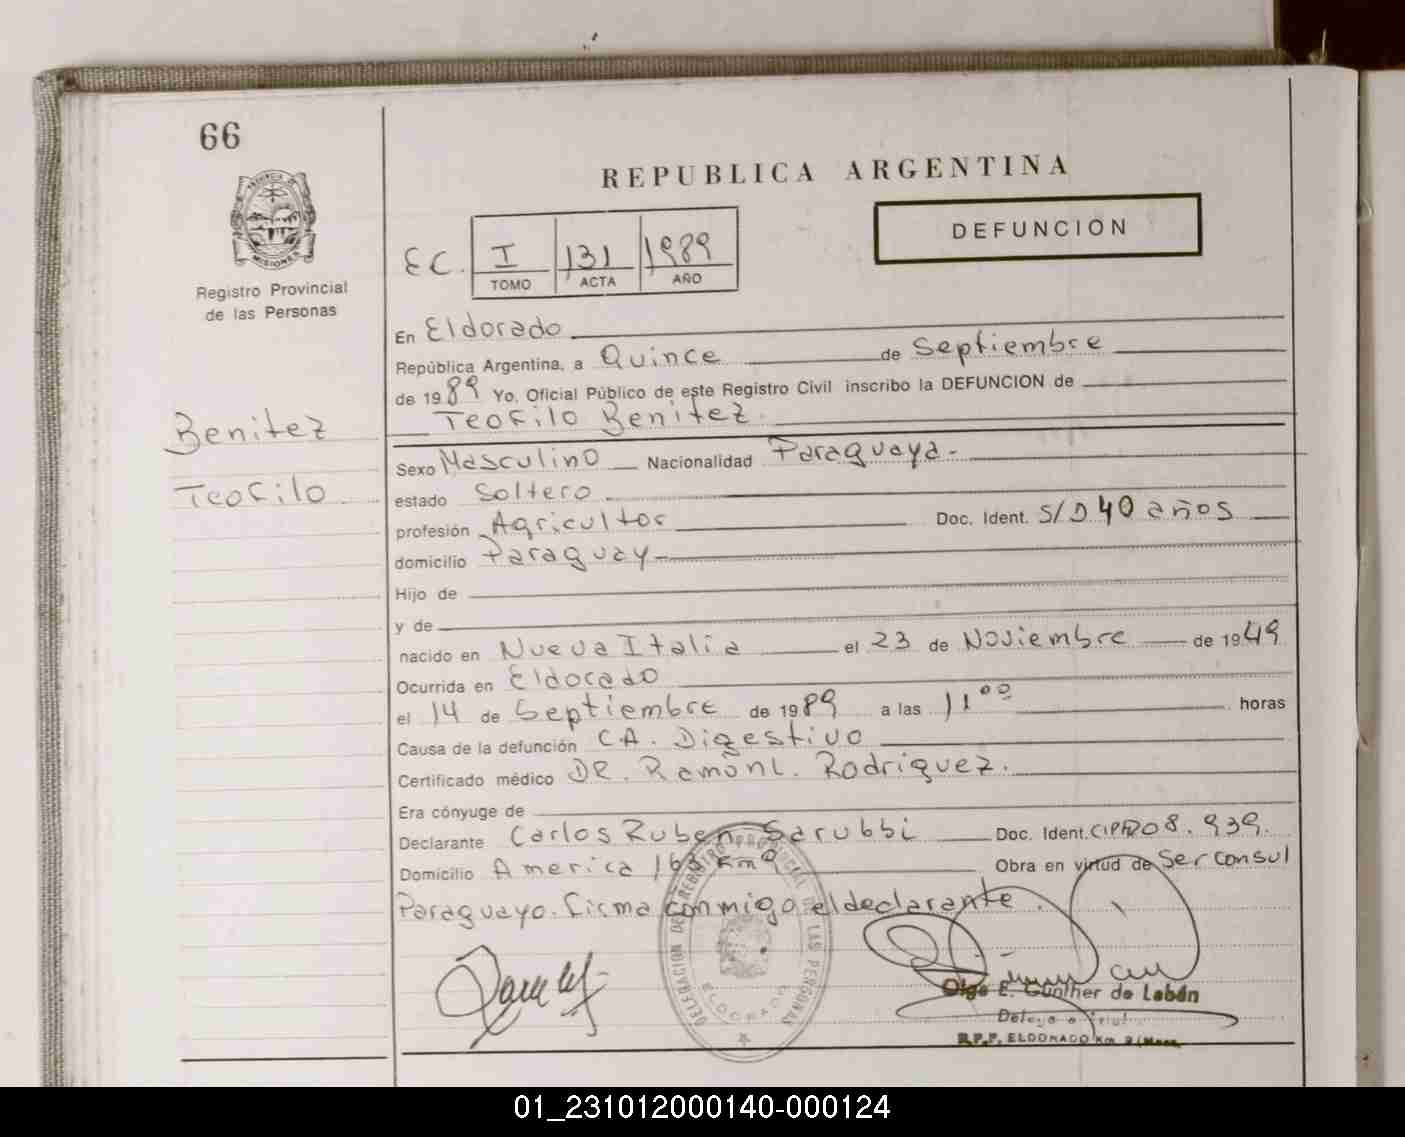 66
REPUBLICA ARGENTINA
PROVINCIA DE MISIONES
Registro Provincial
de las Personas
EC. I 131 1989
TOMO ACTA AÑO
DEFUNCION
En Eldorado
República Argentina, a Quince de Septiembre
de 1989 Yo, Oficial Público de este Registro Civil inscribo la DEFUNCION de
Teofilo Benitez.
Benitez
Teofilo
Sexo Masculino Nacionalidad Paraguaya-
estado Soltero
profesión Agricultor Doc. Ident. S/D 40 años
domicilio Paraguay-
Hijo de
y de
nacido en Nueva Italia el 23 de Noviembre de 1949
Ocurrida en Eldorado
el 14 de Septiembre de 1989 a las 11°° horas
Causa de la defunción CA. Digestivo
Certificado médico DR. Ramón L. Rodriguez.
Era cónyuge de
Declarante Carlos Ruben Sarubbi Doc. Ident. 08.939.
Domicilio America 163 Km 9 Obra en virtud de Ser Consul
Paraguayo. firma conmigo el declarante.
DELEGACION DEL REGISTRO PROVINCIAL DE LAS PERSONAS
ELDORADO
Olga E. Günther de Labán
R.P.P. ELDORADO Km
01_231012000140-000124